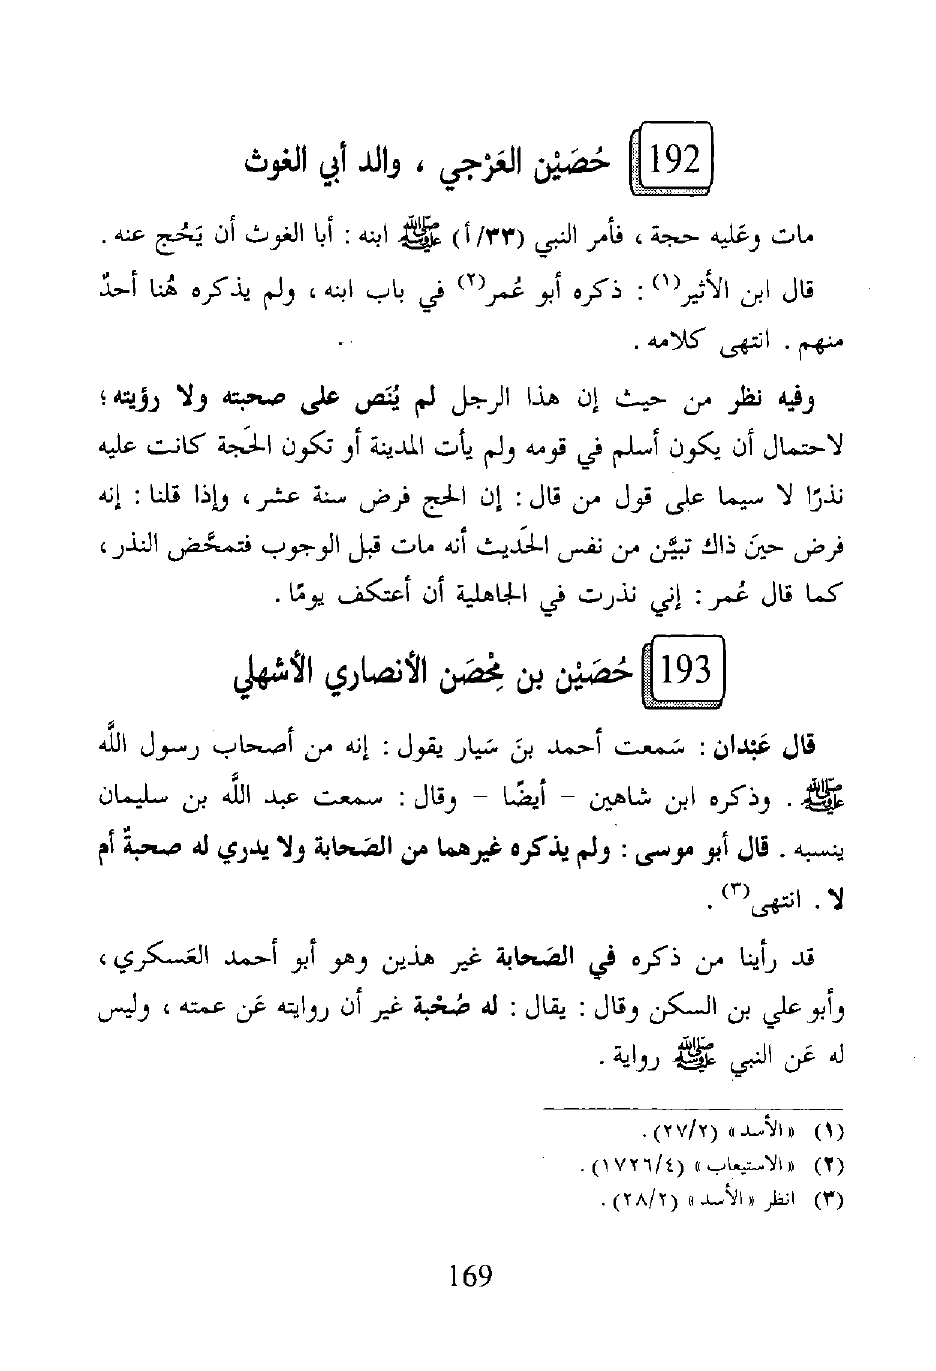 192 حُصَيْن العَرْجي ، والد أبي الغوث
مات وعَليه حجة ، فأمر النبي (٣٣/أ) ﷺ ابنه : أبا الغوث أن يَحُج عنه .
قال ابن الأثير(١) : ذكره أبو عُمر(٢) في باب ابنه ، ولم يذكره هُنا أحدٌ
منهم . انتهى كلامه .
وفيه نظر من حيث إن هذا الرجل لم يُنَص على صحبته ولا رؤيته ؛
لاحتمال أن يكون أسلم في قومه ولم يأت المدينة أو تكون الحَجة كانت عليه
نذرًا لا سيما على قول من قال : إن الحج فرض سنة عشر ، وإذا قلنا : إنه
فرض حينَ ذاك تبيَّن من نفس الحَديث أنه مات قبل الوجوب فتمحَّض النذر ،
كما قال عُمر : إني نذرت في الجاهلية أن أعتكف يومًا .
193 حُصَيْن بن مِحْصَن الأنصاري الأشهلي
قال عَبْدان : سَمعت أحمد بنَ سَيار يقول : إنه من أصحاب رسول اللَّه
ﷺ . وذكره ابن شاهين – أيضًا – وقال : سمعت عبد اللَّه بن سليمان
ينسبه . قال أبو موسى : ولم يذكره غيرهما من الصَحابة ولا يدري له صحبةٌ أم
لا . انتهى(٣) .
قد رأينا من ذكره في الصَحابة غير هذين وهو أبو أحمد العَسكري ،
وأبو علي بن السكن وقال : يقال : له صُحْبة غير أن روايته عَن عمته ، وليس
له عَن النبي ﷺ رواية .
(١) «الأسد» (٢٧/٢).
(٢) «الاستيعاب» (١٧٢٦/٤).
(٣) انظر «الأسد» (٢٨/٢).
169